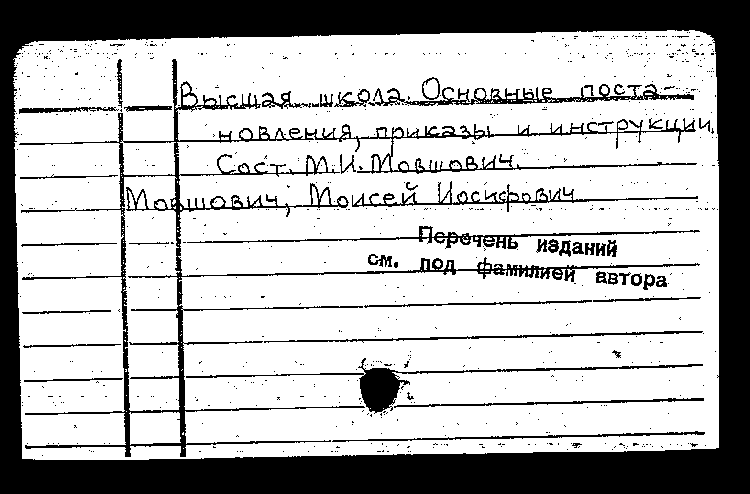 Высшая школа. Основные поста-
новления, приказы и инструкции.
Сост. М.И. Мовшович.
Мовшович, Моисей Иосифович
Перечень изданий
см. под фамилией автора